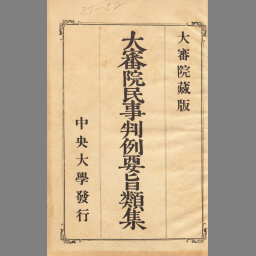 大審院藏版
大審院民事判例要旨類集
中央大學發行